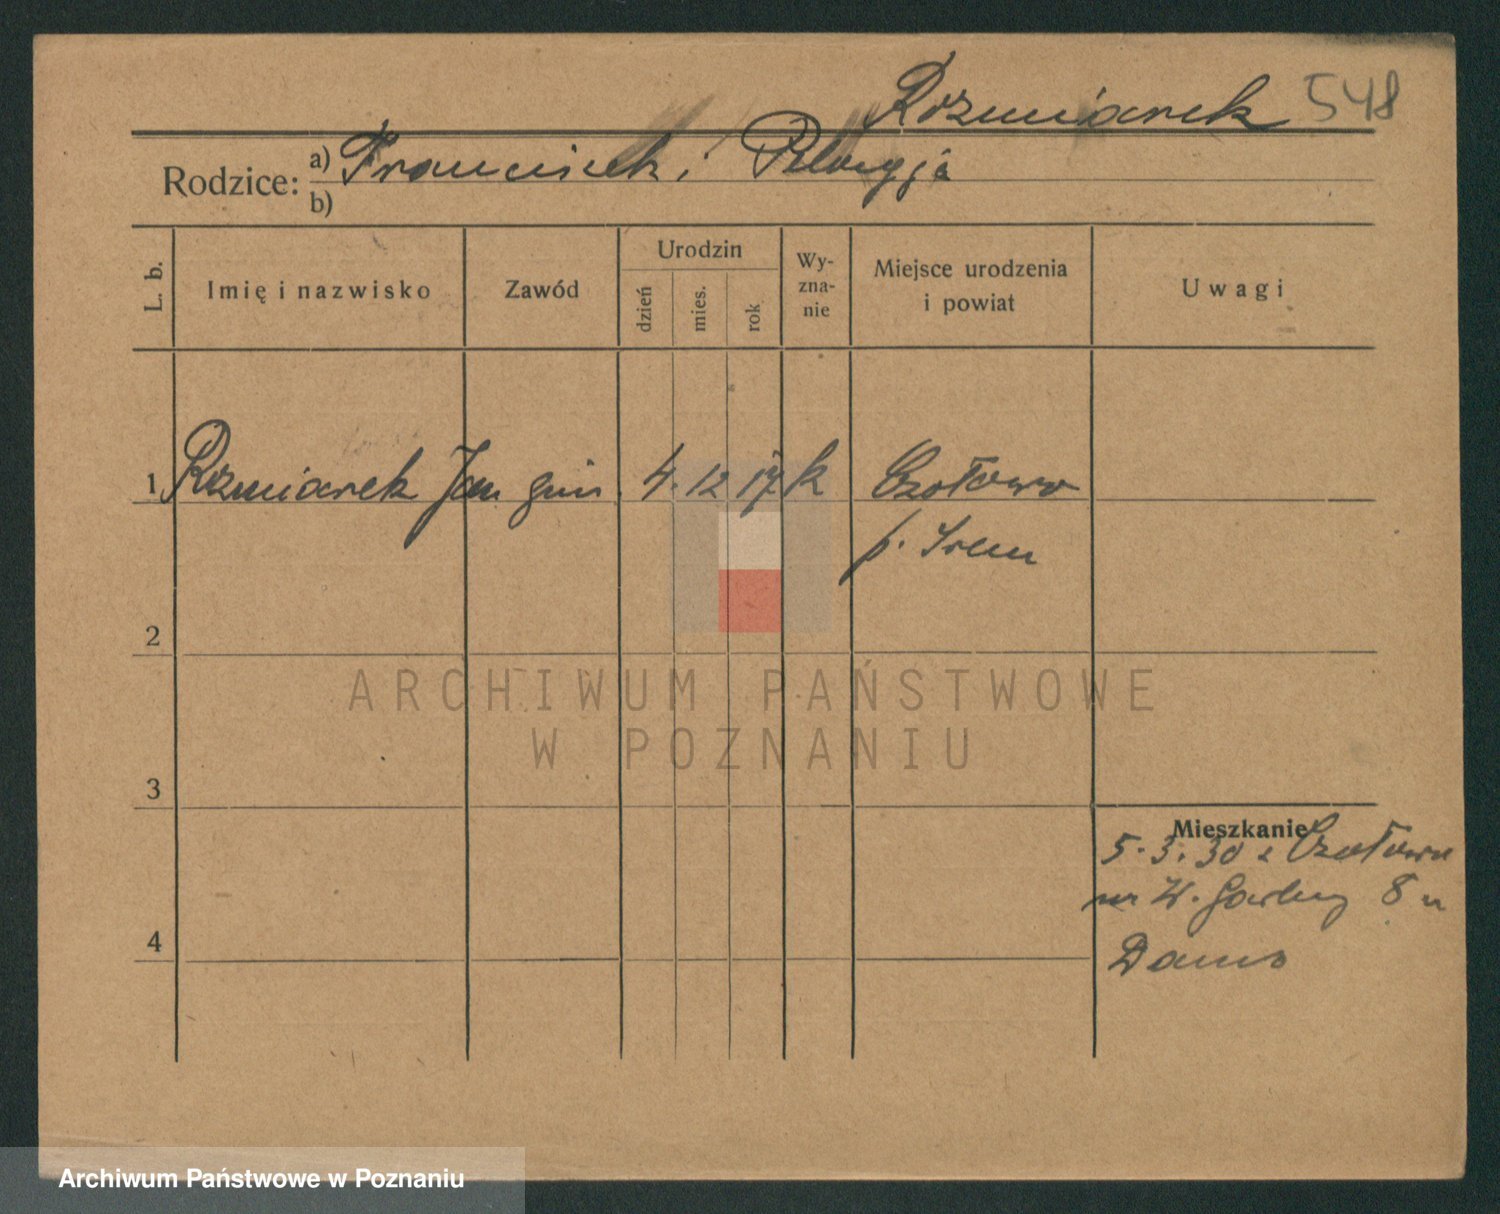 Rozmiarek 548
Rodzice: a) Franciszek i Pelagja
b)
L. b. Imię i nazwisko Zawód Urodzin dzień mies. rok Wy-zna-nie Miejsce urodzenia i powiat Uwagi
1 Rozmiarek Jan gim. 4. 12 17 k Czołowo
p. Śrem
2
ARCHIWUM PAŃSTWOWE
W POZNANIU
3
Mieszkanie
5. 3. 30 z Czołowa
na W. Garbary 8 u
4
Archiwum Państwowe w Poznaniu